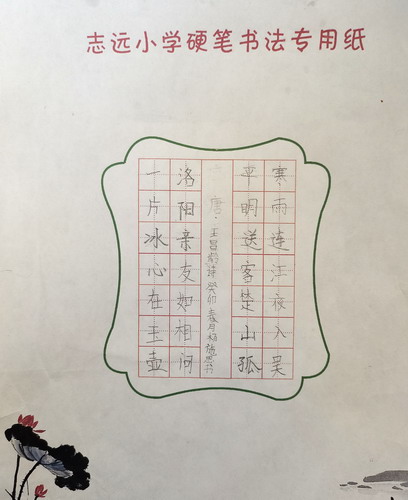 志远小学硬笔书法专用纸
寒雨连江夜入吴
平明送客楚山孤
唐·王昌龄诗 癸卯春月
洛阳亲友如相问
一片冰心在玉壶